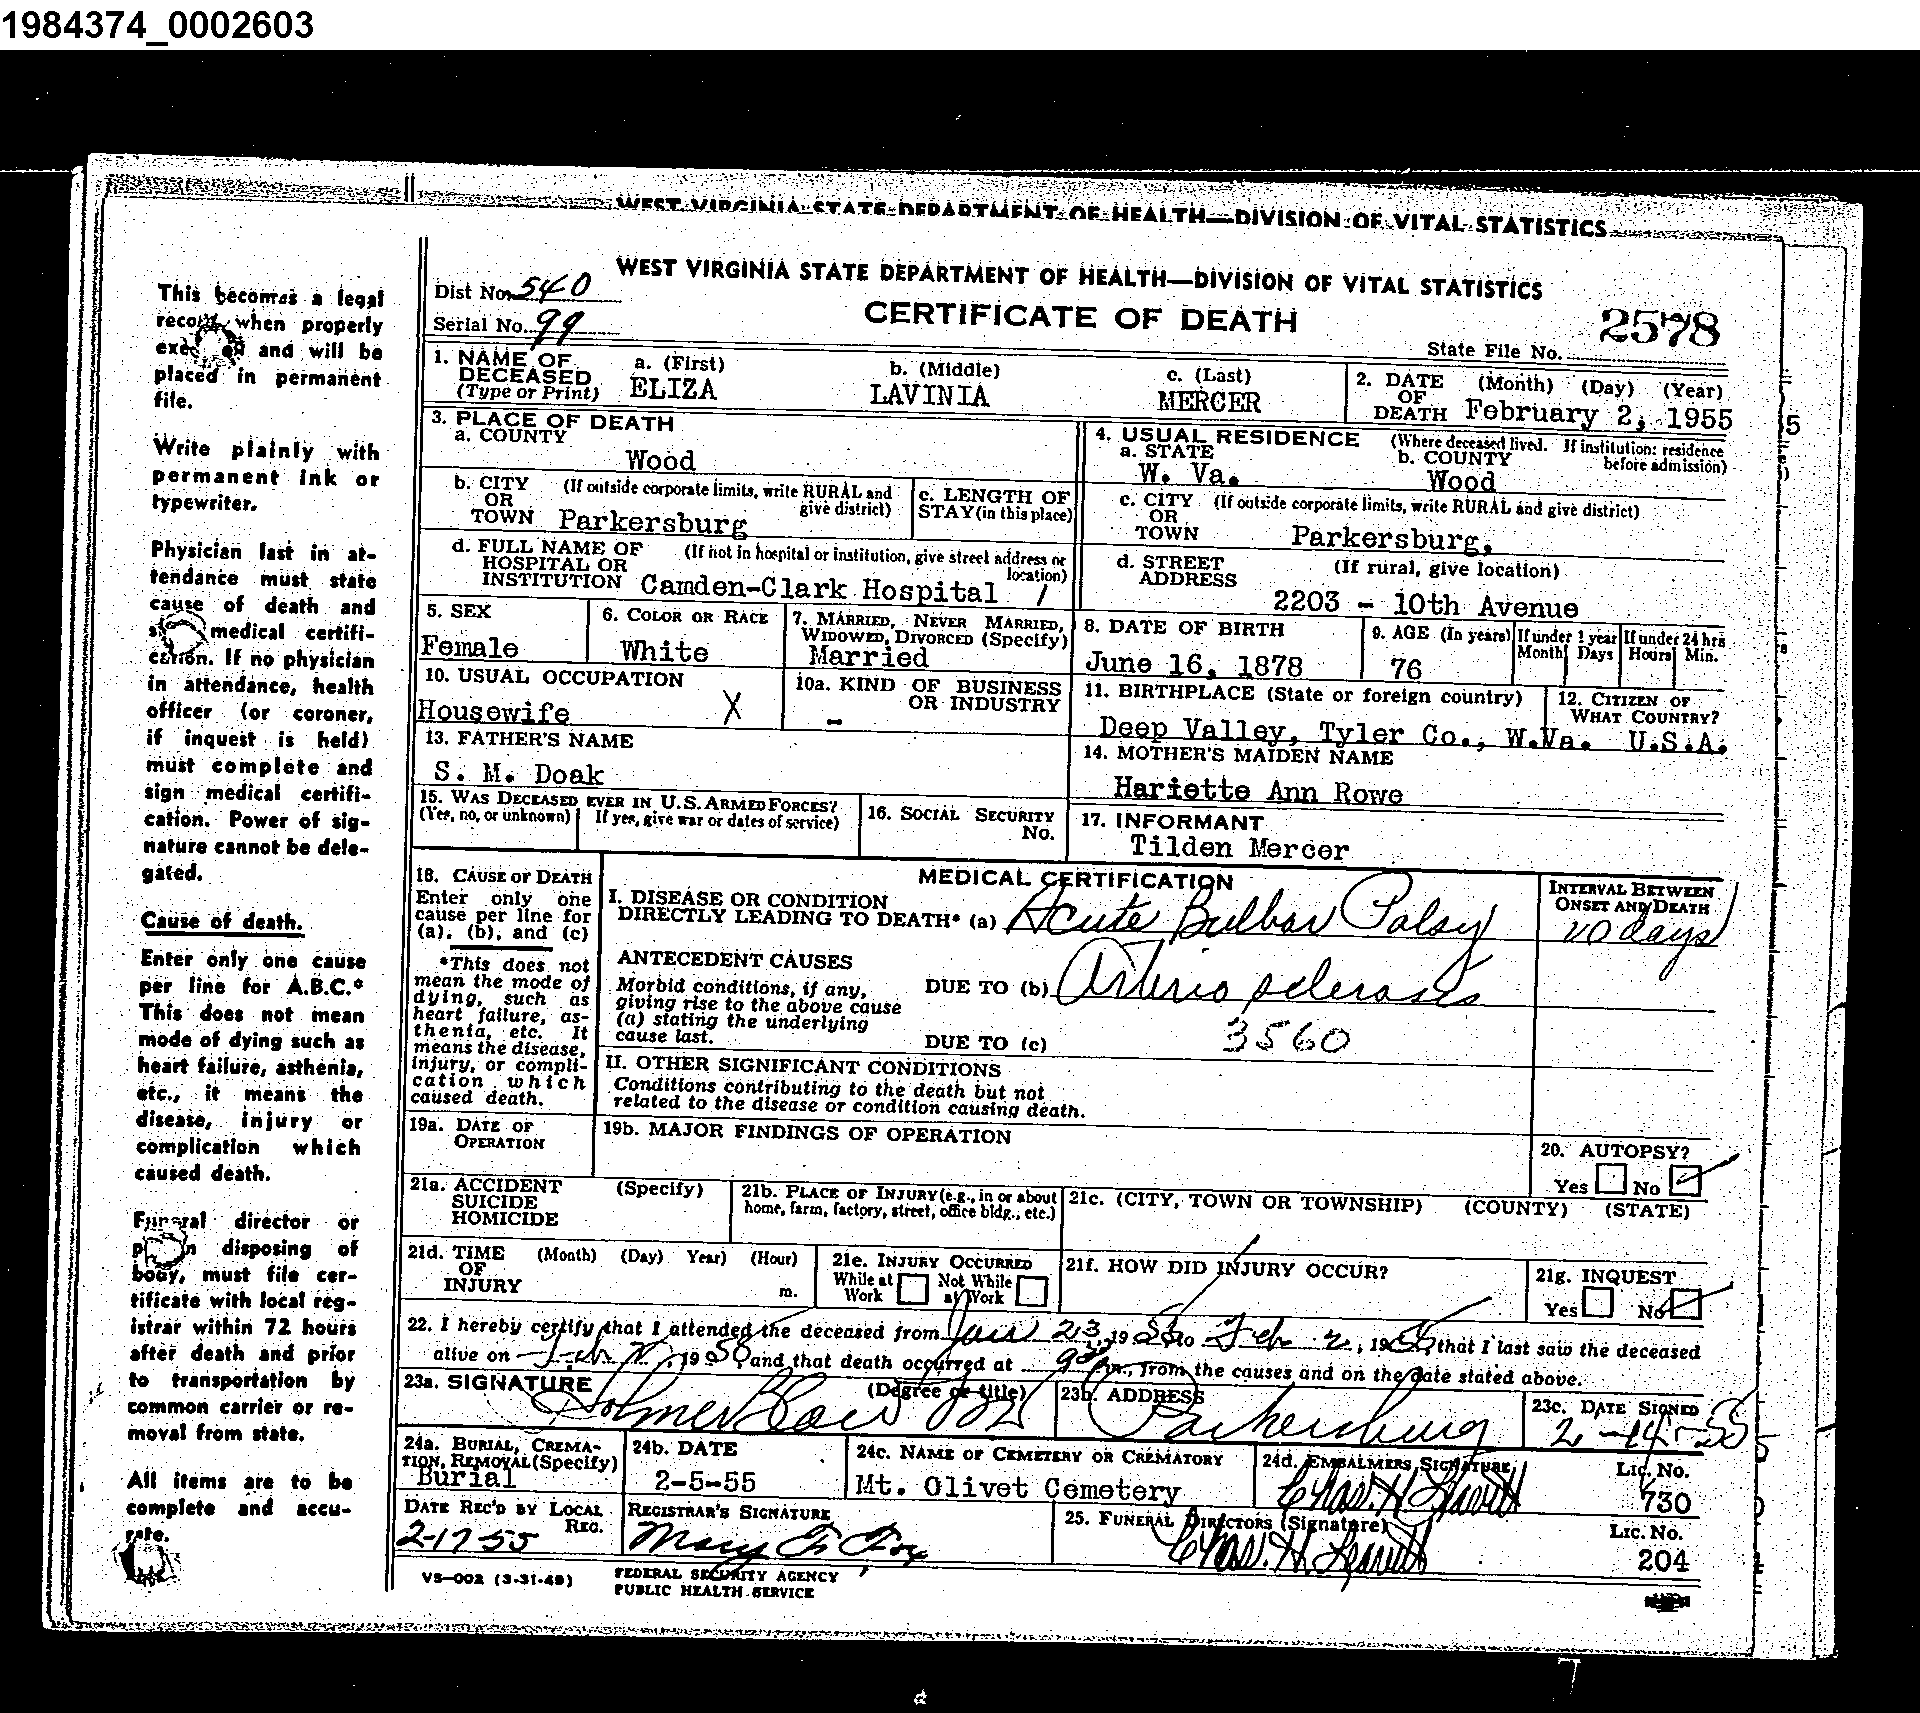 1984374_0002603
WEST VIRGINIA STATE DEPARTMENT OF HEALTH—DIVISION OF VITAL STATISTICS
This becomes a legal
record when properly
executed and will be
placed in permanent
file.
Write plainly with
permanent ink or
typewriter.
Physician last in at-
tendance must state
cause of death and
medical certifi-
cation. If no physician
in attendance, health
officer (or coroner,
if inquest is held)
must complete and
sign medical certifi-
cation. Power of sig-
nature cannot be dele-
gated.
Cause of death.
Enter only one cause
per line for A.B.C.*
This does not mean
mode of dying such as
heart failure, asthenia,
etc., it means the
disease, injury or
complication which
caused death.
Funeral director or
person disposing of
body, must file cer-
tificate with local reg-
istrar within 72 hours
after death and prior
to transportation by
common carrier or re-
moval from state.
All items are to be
complete and accu-
rate.
WEST VIRGINIA STATE DEPARTMENT OF HEALTH—DIVISION OF VITAL STATISTICS
Dist No. 540
CERTIFICATE OF DEATH
Serial No. 99
State File No. 2578
1. NAME OF DECEASED (Type or Print) a. (First) ELIZA b. (Middle) LAVINIA c. (Last) MERCER
2. DATE OF DEATH (Month) (Day) (Year) February 2, 1955
3. PLACE OF DEATH
a. COUNTY Wood
4. USUAL RESIDENCE (Where deceased lived. If institution: residence before admission)
a. STATE W. Va. b. COUNTY Wood
b. CITY OR TOWN (If outside corporate limits, write RURAL and give district) Parkersburg
c. LENGTH OF STAY (in this place)
c. CITY OR TOWN (If outside corporate limits, write RURAL and give district) Parkersburg,
d. FULL NAME OF HOSPITAL OR INSTITUTION (If not in hospital or institution, give street address or location) Camden-Clark Hospital 1
d. STREET ADDRESS (If rural, give location) 2203 - 10th Avenue
5. SEX Female
6. COLOR OR RACE White
7. MARRIED, NEVER MARRIED, WIDOWED, DIVORCED (Specify) Married
8. DATE OF BIRTH June 16, 1878
9. AGE (In years) 76 If under 1 year Month Days If under 24 hrs Hours Min.
10. USUAL OCCUPATION Housewife X
10a. KIND OF BUSINESS OR INDUSTRY -
11. BIRTHPLACE (State or foreign country) Deep Valley, Tyler Co., W.Va.
12. CITIZEN OF WHAT COUNTRY? U.S.A.
13. FATHER'S NAME S. M. Doak
14. MOTHER'S MAIDEN NAME Hariette Ann Rowe
15. WAS DECEASED EVER IN U.S. ARMED FORCES? (Yes, no, or unknown) If yes, give war or dates of service)
16. SOCIAL SECURITY No.
17. INFORMANT Tilden Mercer
18. CAUSE OF DEATH
Enter only one
cause per line for
(a), (b), and (c)
*This does not
mean the mode of
dying, such as
heart failure, as-
thenia, etc. It
means the disease,
injury, or compli-
cation which
caused death.
MEDICAL CERTIFICATION
I. DISEASE OR CONDITION
DIRECTLY LEADING TO DEATH* (a) Acute Bulbar Palsy
INTERVAL BETWEEN ONSET AND DEATH 10 days
ANTECEDENT CAUSES
Morbid conditions, if any,
giving rise to the above cause
(a) stating the underlying
cause last.
DUE TO (b) Arterio sclerosis
DUE TO (c) 3560
II. OTHER SIGNIFICANT CONDITIONS
Conditions contributing to the death but not
related to the disease or condition causing death.
19a. DATE OF OPERATION
19b. MAJOR FINDINGS OF OPERATION
20. AUTOPSY? Yes No
21a. ACCIDENT SUICIDE HOMICIDE (Specify)
21b. PLACE OF INJURY (e.g., in or about home, farm, factory, street, office bldg., etc.)
21c. (CITY, TOWN OR TOWNSHIP) (COUNTY) (STATE)
21d. TIME OF INJURY (Month) (Day) Year) (Hour) m.
21e. INJURY OCCURRED While at Work Not While at Work
21f. HOW DID INJURY OCCUR?
21g. INQUEST Yes No
22. I hereby certify that I attended the deceased from Jan 23, 1955 to Feb 2, 1955, that I last saw the deceased
alive on Feb 2, 1955, and that death occurred at m., from the causes and on the date stated above.
23a. SIGNATURE (Degree or title) Blair
23b. ADDRESS Parkersburg
23c. DATE SIGNED 2-14-55
24a. BURIAL, CREMATION, REMOVAL (Specify) Burial
24b. DATE 2-5-55
24c. NAME OF CEMETERY OR CREMATORY Mt. Olivet Cemetery
24d. EMBALMERS SIGNATURE Chas. H. Leavitt Lic. No. 730
DATE REC'D BY LOCAL REG. 2-17-55
REGISTRAR'S SIGNATURE Mary F. Fox
25. FUNERAL DIRECTORS (Signature) Chas. H. Leavitt Lic. No. 204
VS—002 (3-31-49)
FEDERAL SECURITY AGENCY
PUBLIC HEALTH SERVICE